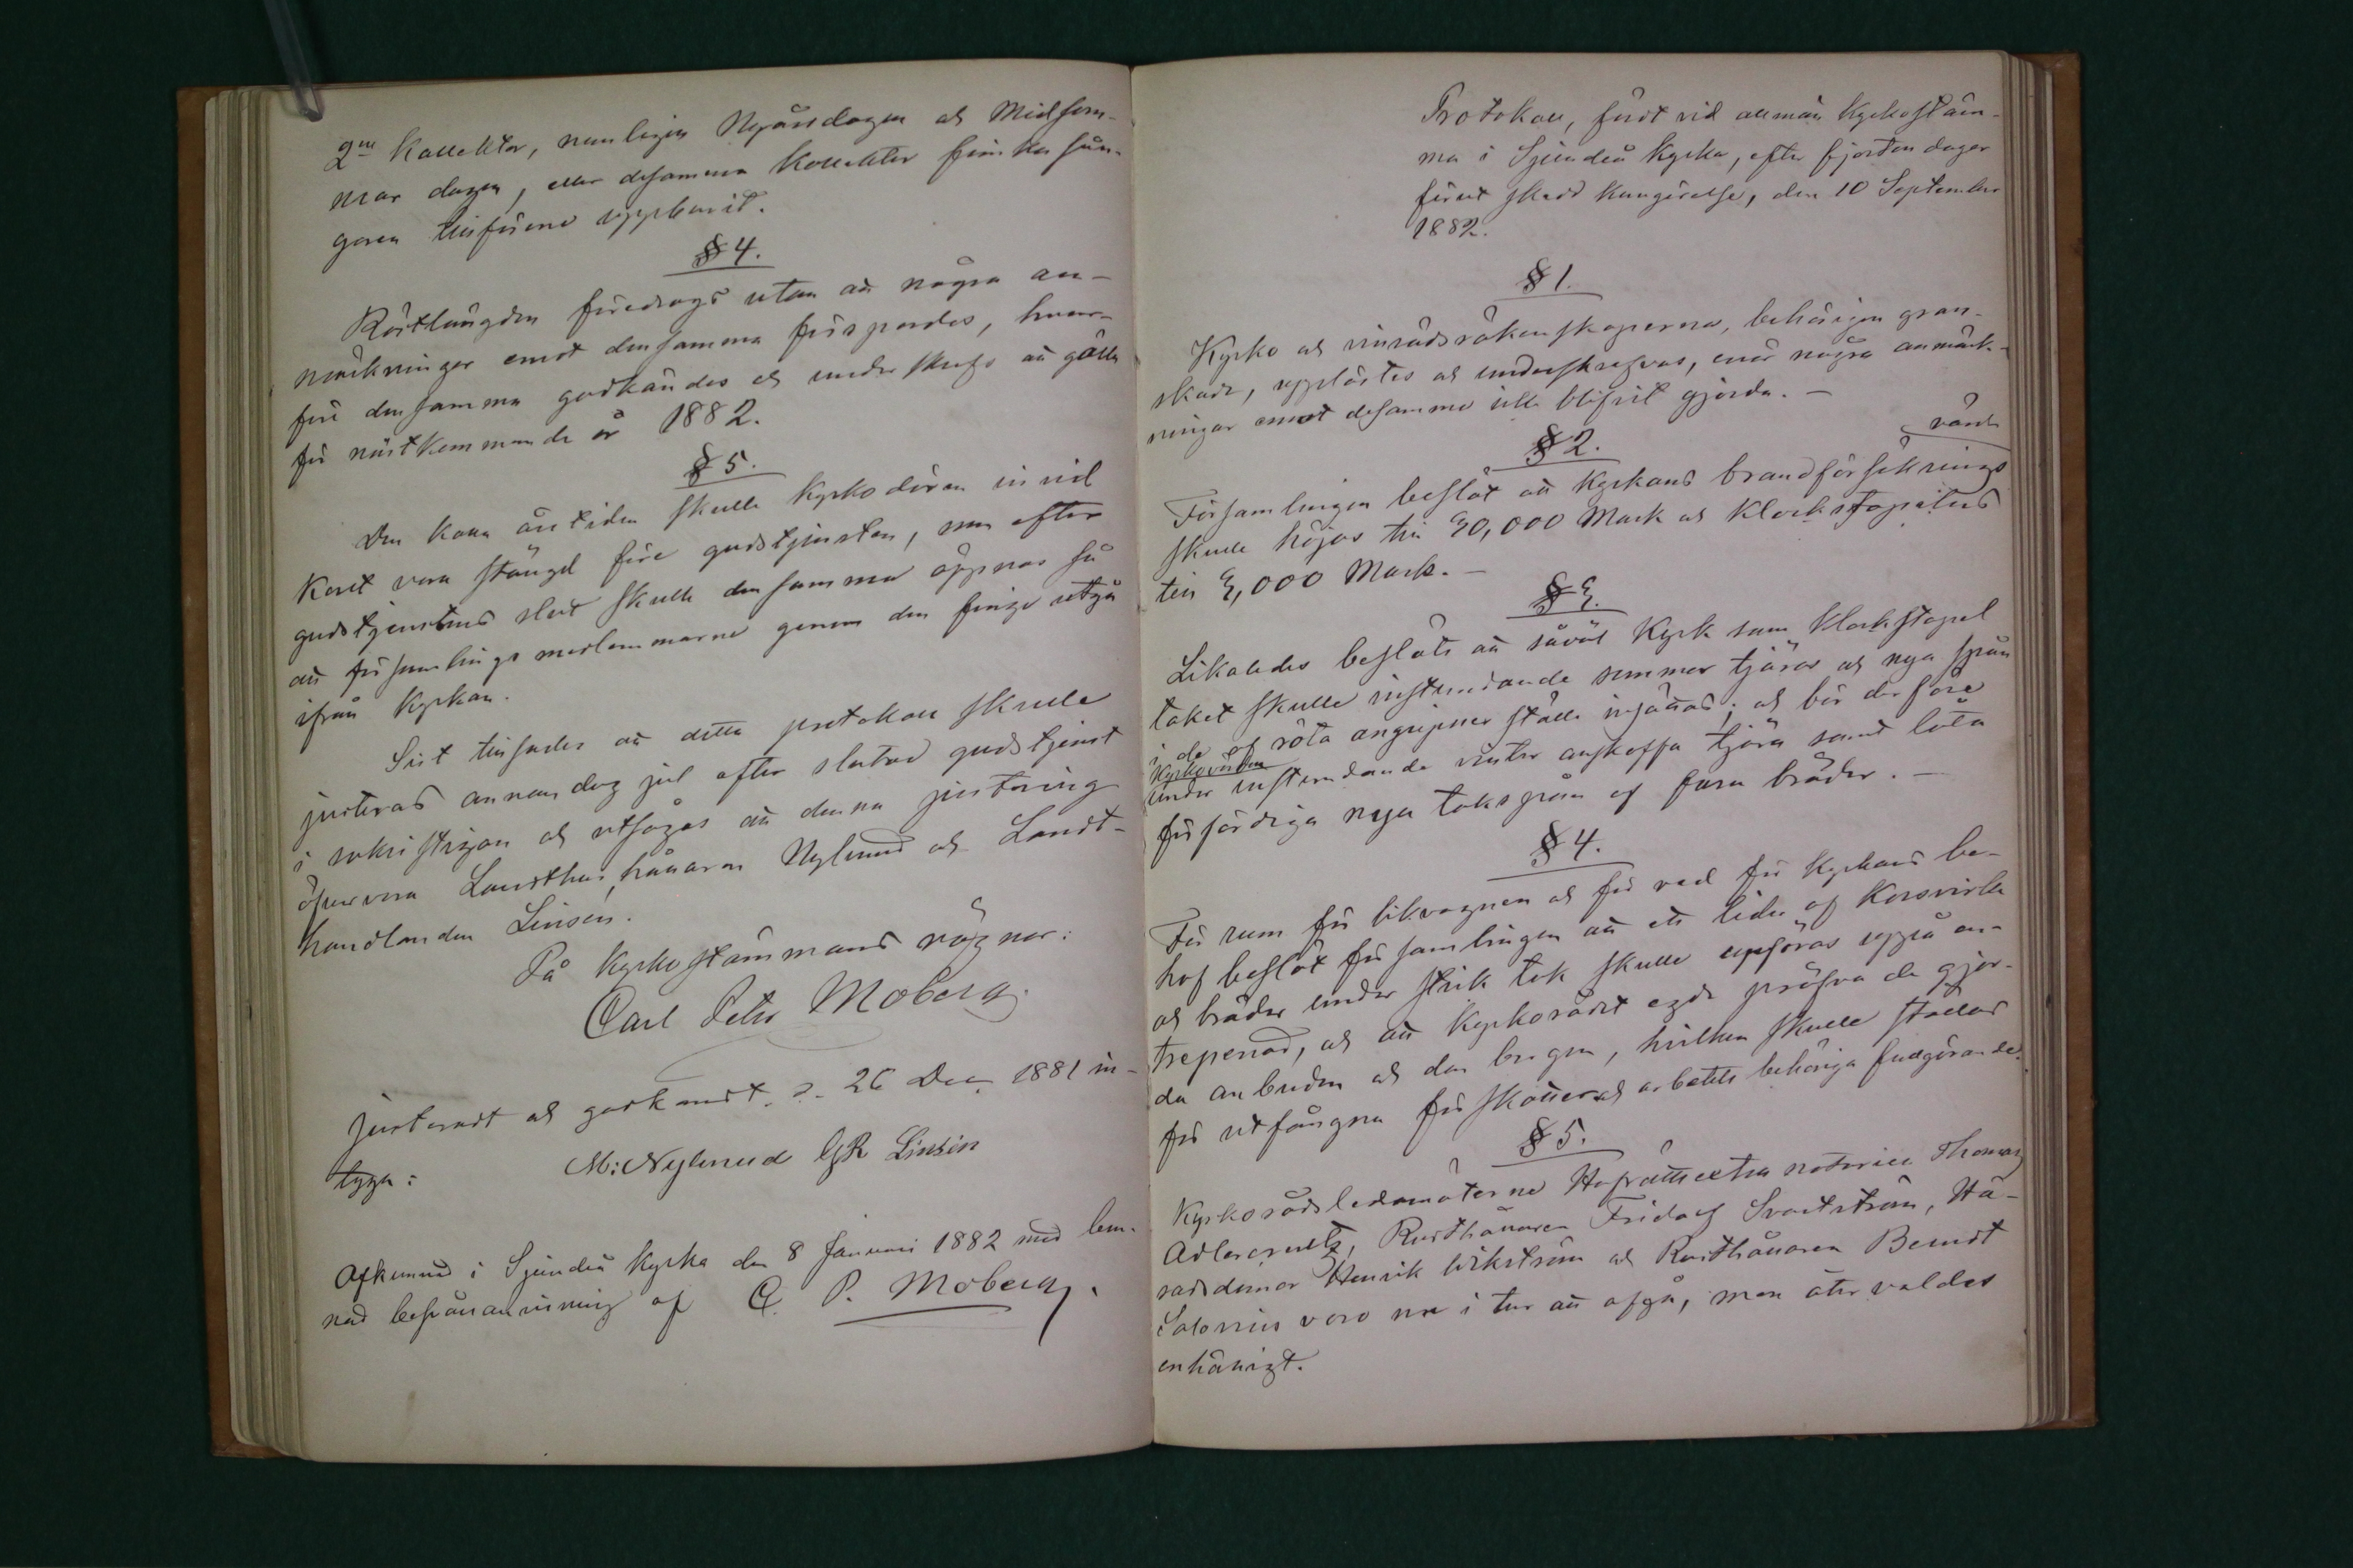 2ne Kollekter, nemligen Nyårsdagen och Midsom-
mar dagen, eller desamma Kollekter finska sån-
garen tillförene uppburit.
§ 4.
Röstlängden föredrogs utan att några an-
märkningar emot densamma förspordes, hvar-
före densamma godkändes och underskrefs att gälla
för nästkommande år 1882.
§ 5.
Den kalla årstiden skulle Kyrkodörren invid
Koret vara stängd före gudstjensten, men efter
gudstjenstens slut skulle densamma öppnas så
att församlings medlemmarne genom den finge utgå
ifrån Kyrkan.
Sist tillsades att detta protokoll skulle
justeras annan dag jul efter slutad gudstjenst
i sakristigan och utsågos att denna justering
öfvervara Landthushållaren Nylund och Landt-
handlanden Linsén.
På Kyrkostämmans vägnar:
Carl Peter Moberg.
Justeradt och godkändt d. 26 Dec 1881 in-
tyga:
M: Nylund G R Linsén
Afkunnad i Sjundeå Kyrka den 8 Januari 1882 med lem-
nad besvärsanvisning af C. P. Moberg.
Protokoll, fördt vid allmän Kyrkostäm-
ma i Sjundeå Kyrka, efter fjorton dagar
förut skedd kungörelse, den 10 September
1882.
§ 1.
Kyrko och räkenskaperna, behörigen gran-
skade, upplästes och underskrefvos, enär några anmärk-
ningar emot desamma icke blifvit gjorda. —
§ 2.
värde
Församlingen beslöt att Kyrkans brandförsäkrings
skulle höjas till 30,000 Mark och Klockstapelns
till 3,000 Mark. —
§ 3.
Likaledes beslöts att såväl Kyrk som Klockstapel
taket skulle instundande sommar tjäras och nya spån
i de af röta angripna ställe insättas; och bör derföre
Kyrkovärden
under instundande vinter anskaffa tjära samt låta
förfärdiga nya takspån af furu bräder. —
§ 4.
För rum för likvagnen och för ved för Kyrkans be-
hof beslöt församlingen att ett lider af Korsvirke
och bräder under stick tak skulle uppföras uppå en-
trepenad, och att Kyrkorådet egde pröfva de gjor-
da anbuden och den borgen, hvilken skulle ställas
för utfångna förskotter och arbetets behöriga fullgörande.
§ 5.
Kyrkorådsledamöterne Hofrättsextra notarien Thomas
Adlercreutz, Rusthållaren Fridolf Svartström, Hä-
radsdomar Henrik Wikström och Rusthållaren Berndt
Salenius voro nu i tur att afgå, men återvaldes
enhälligt.